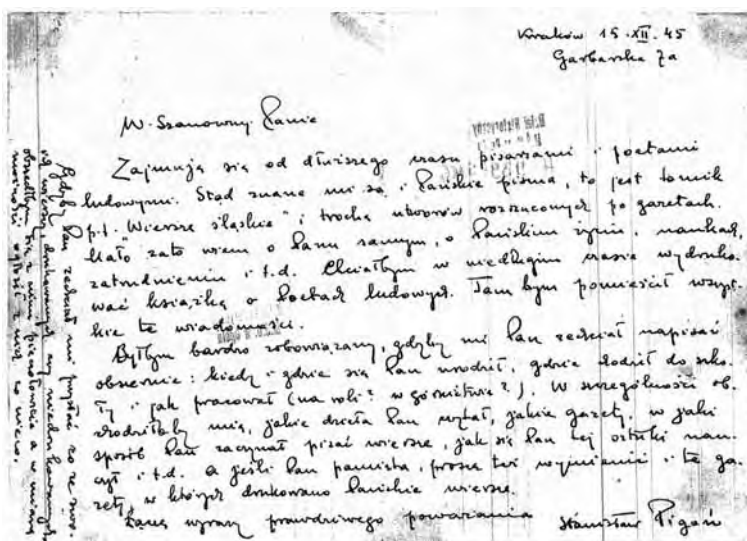 Kraków 15.XII.45
Garbarska 7a
W. Szanowny Panie
Zajmuję się od dłuższego czasu pisarzami i poetami
ludowymi. Stąd znane mi są i Pańskie pisma, to jest tomik
p.t. "Wiersze śląskie" i trochę utworów rozrzuconych po gazetach.
Mało zato wiem o Panu samym, o Pańskim życiu, naukach,
zatrudnieniu i t.d. Chciałbym w niedługim czasie wydruko-
wać książkę o Poetach ludowych. Tam bym pomieścił wszyst-
kie te wiadomości.
Byłbym bardzo zobowiązany, gdyby mi Pan zechciał napisać
obszernie: kiedy i gdzie się Pan urodził, gdzie chodził do szko-
ły i jak pracował (na roli? w górnictwie?). W szczególności ob-
chodziłoby mię, jakie dzieła Pan czytał, jakie gazety, w jaki
sposób Pan zaczynał pisać wiersze, jak się Pan tej sztuki nau-
czył i t.d. A jeśli Pan pamięta, proszę też wymienić i te ga-
zety, w których drukowano Pańskie wiersze.
Łączę wyrazy prawdziwego poważania Stanisław Pigoń
Gdyby Pan zechciał mi przysłać co ze swo-
ich wierszy drukowanych czy niedrukowanych,
obszedłbym się z niemi pieczołowicie a w miarę
możności ogłosił z nich co nieco.